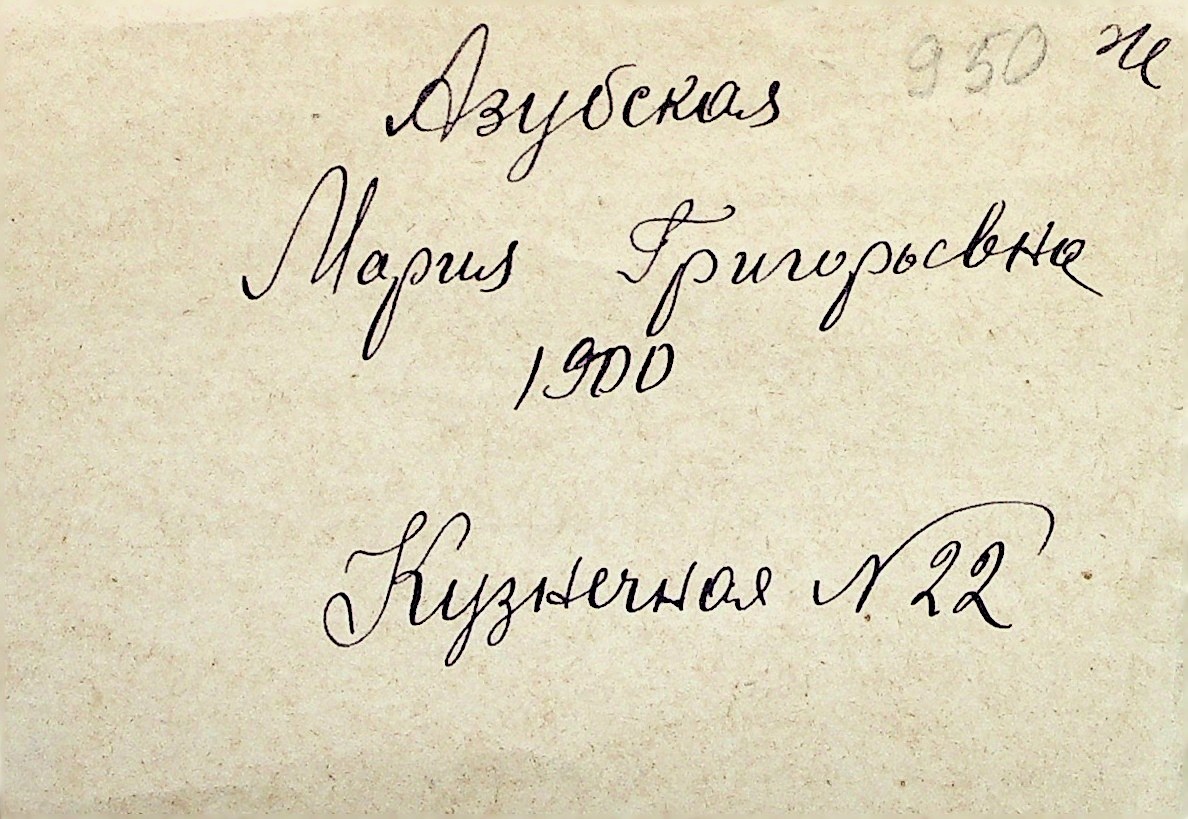 950 н
Азубская
Мария Григорьевна
1900
Кузнечная N 22